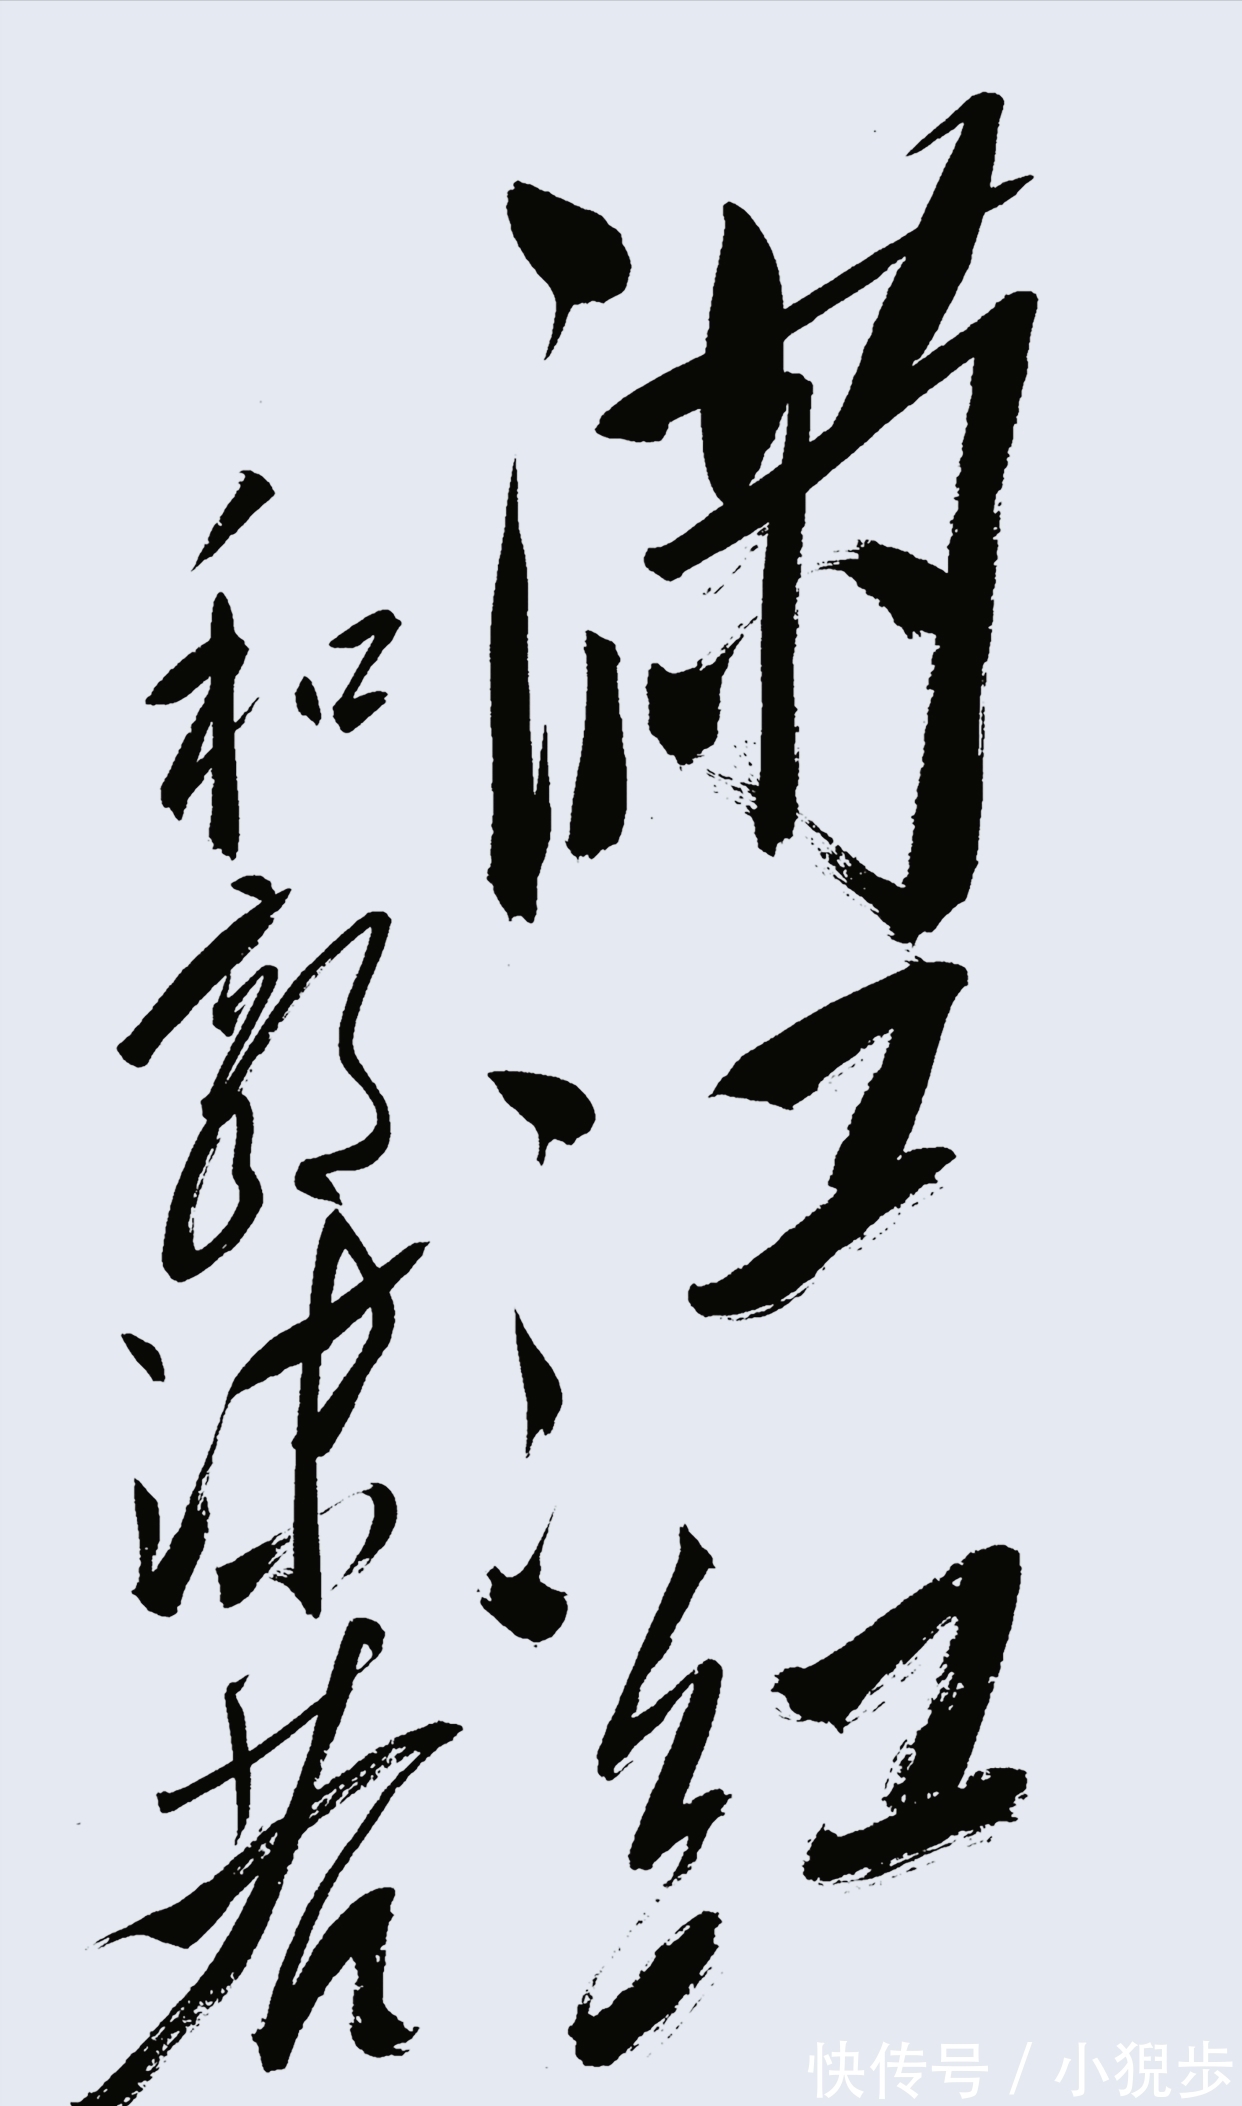 满江红
和郭沫若
快传号 / 小猊步